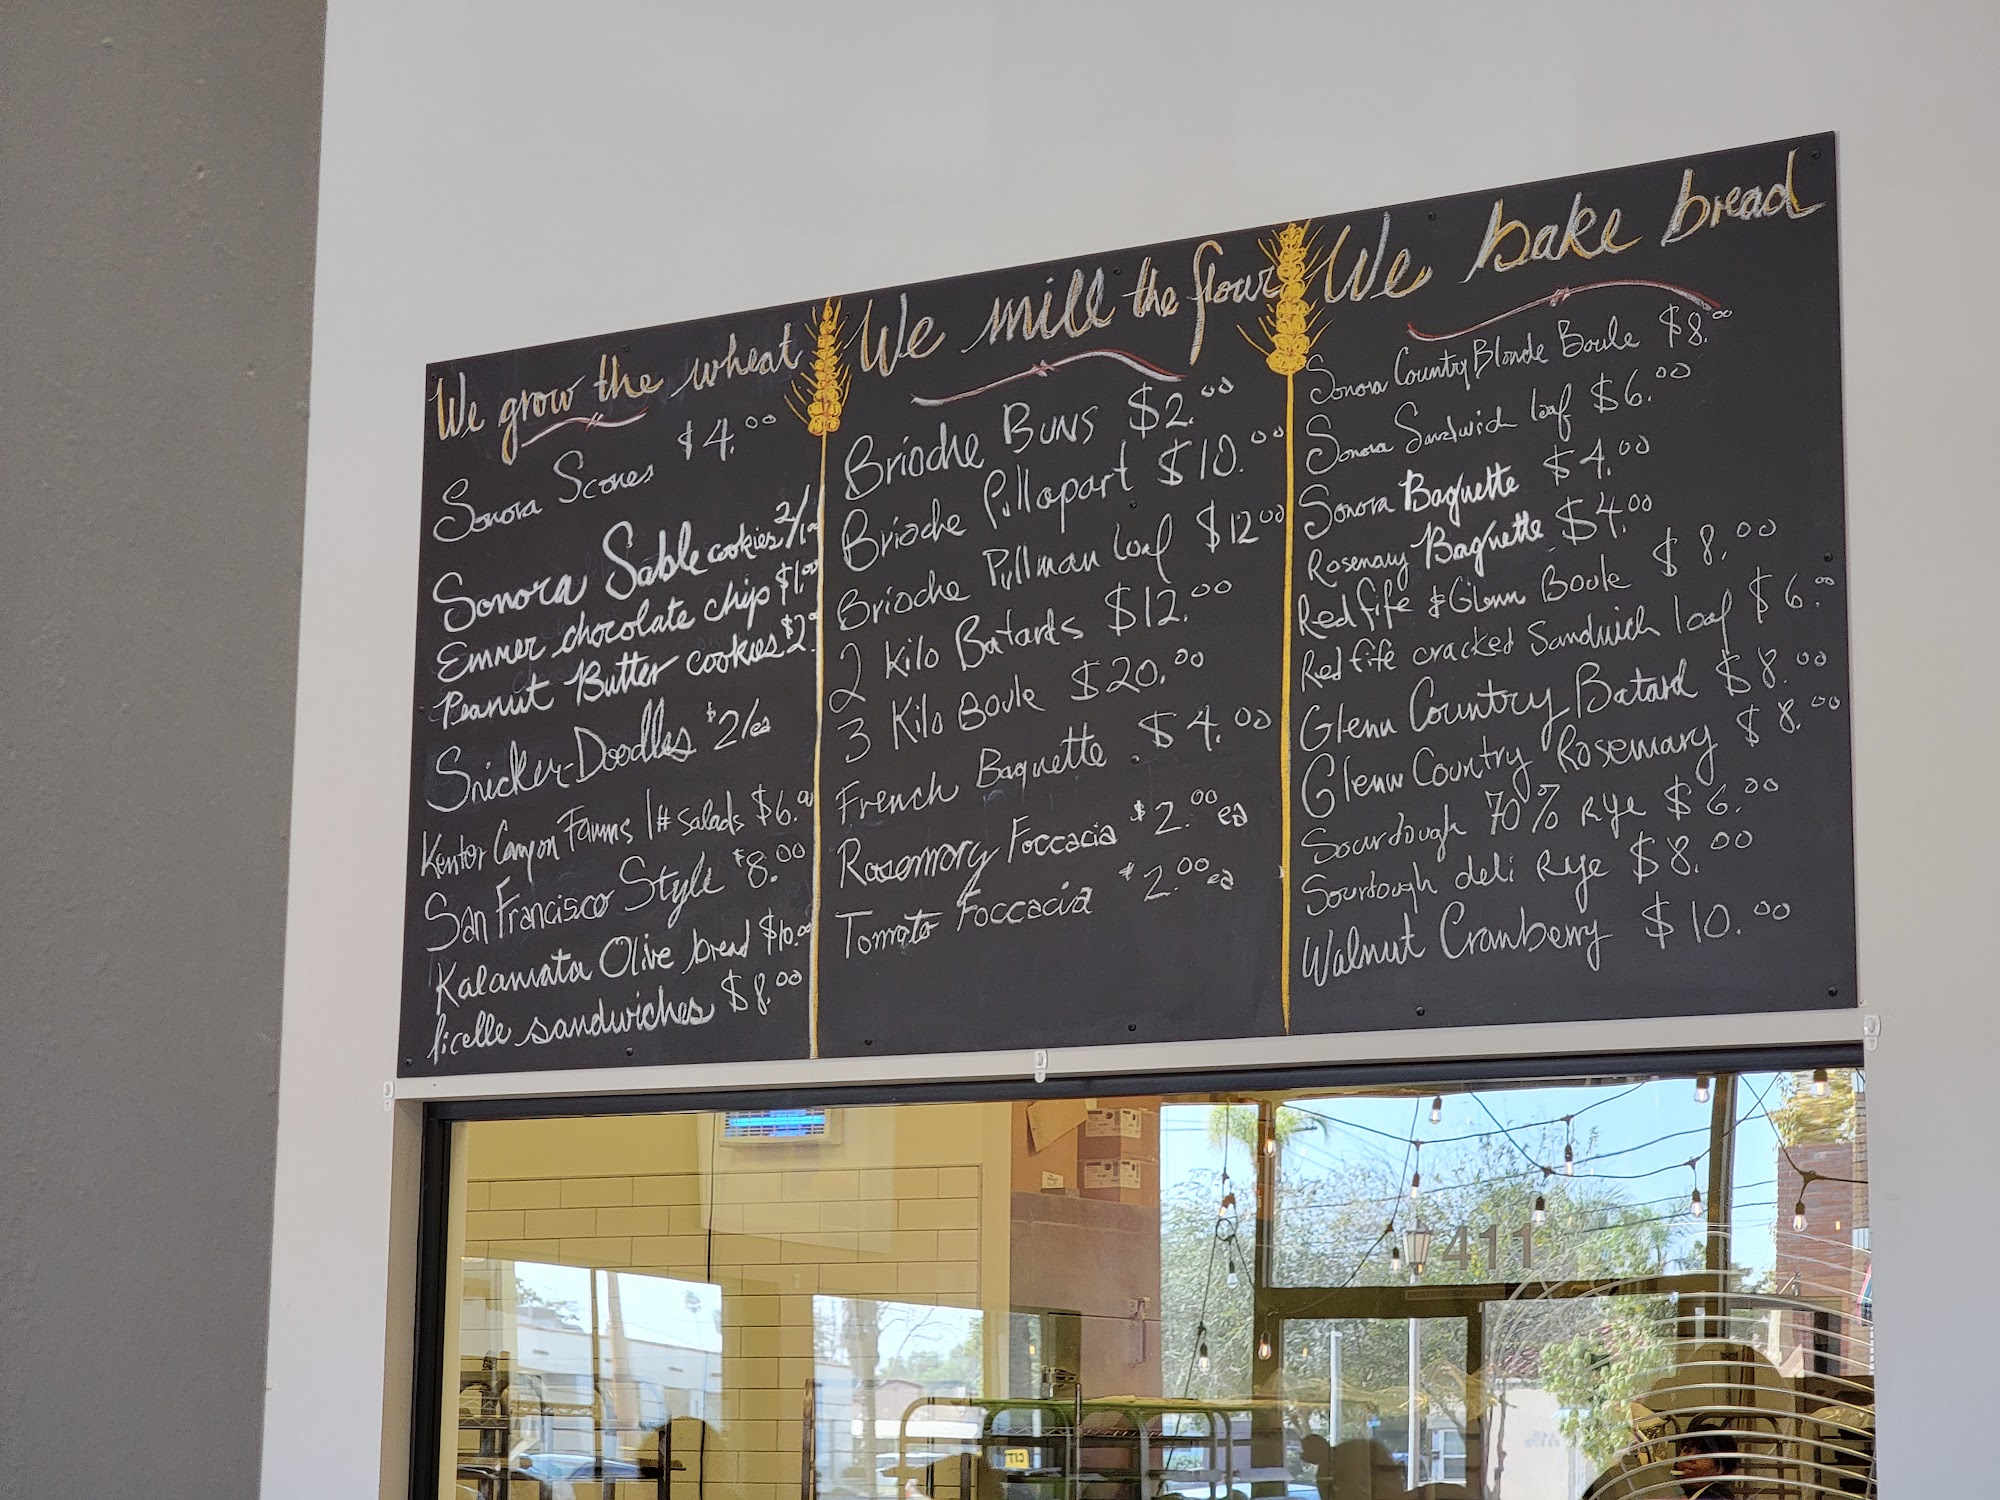 We grow the wheat
Sonora Scones $4.00
Sonora Sable cookies 2/1.00
Emmer chocolate chip $1.00
Peanut Butter cookies $2.
Snicker-Doodles $2/ea
Kentor Canyon Farms 1# salads $6.00
San Francisco Style $8.00
Kalamata Olive bread $10.00
ficelle sandwiches $8.00
We mill the flour
Brioche Buns $2.00
Brioche Pullapart $10.00
Brioche Pullman loaf $12.00
2 Kilo Batards $12.00
3 Kilo Boule $20.00
French Baguette $4.00
Rosemary Foccacia $2.00 ea
Tomato Foccacia $2.00 ea
We bake bread
Sonora Country Blonde Boule $8.00
Sonora Sandwich loaf $6.00
Sonora Baguette $4.00
Rosemary Baguette $4.00
Red fife & Glenn Boule $8.00
Red fife cracked Sandwich loaf $6.00
Glenn Country Batard $8.00
Glenn Country Rosemary $8.00
Sourdough 70% Rye $6.00
Sourdough deli Rye $8.00
Walnut Cranberry $10.00
411